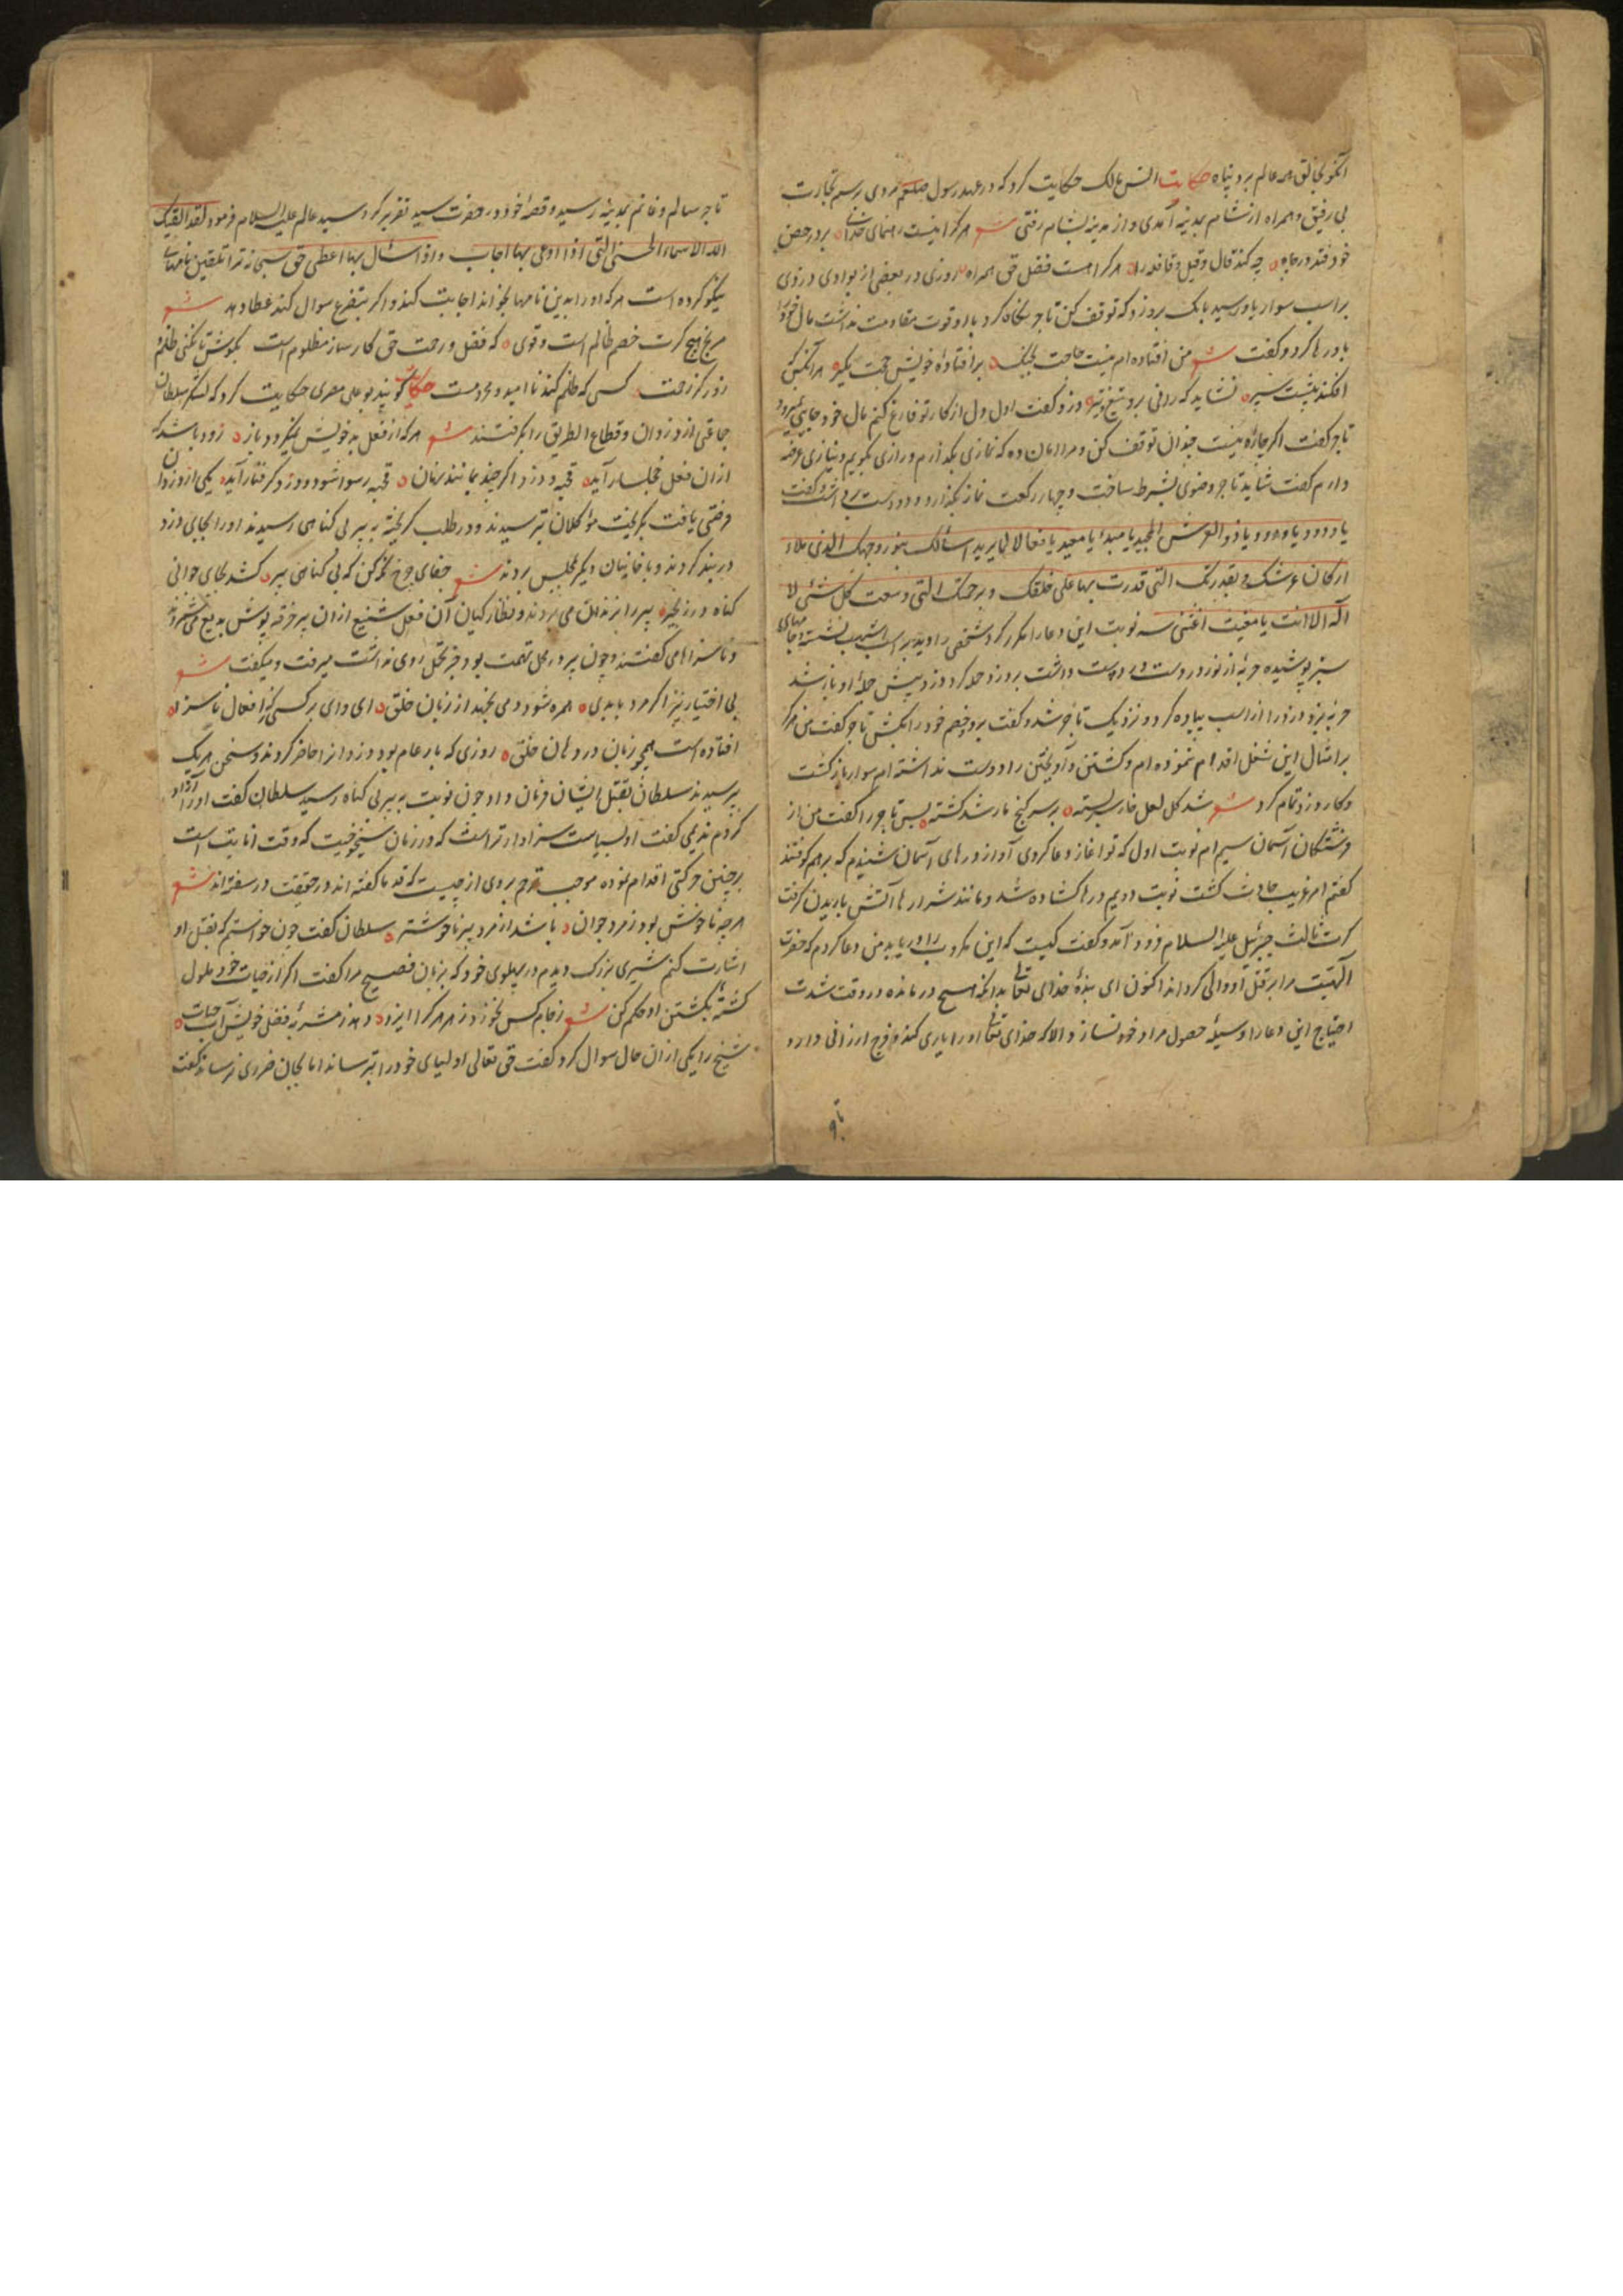 آنکو بخالق همه عالم برد پناه حکایت انس مالک حکایت کرد که در عهد رسول صلعم مردی برسم تجارت
بی رفیق و همراه از شام بمدینه آمدی و از مدینه بشام رفتی شعر هر کرا نیست رهنمای خدا برد رخصن
خود فتد در چاه چه کند قال و قیل و قافله را هر کرا هست فضل حق همراه روزی در بعضی از بوادی دزدی
بر اسب سوار باو رسید بانک برو زد که توقف کن تاجر نگاه کرد با او قوت مقاومت نداشت مال خود را
باو رها کرد و گفت شعر من افتاده ام نیست حاجت بجنگ بر افتادهٔ خویش حجت مگیر هر آنکس که
افکند پشت سپر نشاید که رانی برو تیغ و تیر دزد گفت اول دل از کار تو فارغ کنم مال خود جایی نمیرود
تاجر گفت اگر چاره نیست چندان توقف کن و مرا امان ده که نمازی بگذارم و رازی بگویم و نیازی عرضه
دارم گفت شاید تاجر وضوی بشرط ساخت و چهار رکعت نماز بگذارد و دست برداشت و گفت
یا ودود یا ودود یا ذو العرش المجید یا مبدء یا معید یا فعالا لما یرید اسألک بنور وجهک الذی ملاء
ارکان عرشک و بقدرتک التی قدرت بها علی خلقک و برحمتک التی وسعت کل شئی لا
اله الا انت یا مغیث اغثنی سه نوبت این دعا را مکرر کرد شخصی را دید بر اسب اشهب نشسته و جامهای
سبز پوشیده حربهٔ از نور در دست داشت برو زد حمله کرد دزد پیش حملهٔ او باز شد
حربه بزد و دزد را از اسب پیاده کرد و نزدیک تاجر شد و گفت برو خصم خود را بکش تاجر گفت من هرگز
بر امثال این شغل اقدام ننموده ام و کشتن و آویختن را دوست نداشته ام سوار باز گشت
و کار دزد تمام کرد شعر شد گل لعل خار بسته بر سر گنج مار شد کشته پس تاجر را گفت من از
فرشتگان آسمان سیم ام نوبت اول که تو آغاز دعا کردی آواز درهای آسمان شنیدم که برهم کوفتند
گفتم امر غریب حادث گشت نوبت دویم درها گشاده شد و مانند شرارها آتش باریدن گرفت
کرت ثالث جبرئیل علیه السلام فرود آمد و گفت کیست که این مکروب را دریابد من دعا کردم که حضرت
الهیت مرا بر قتل او والی گرداند اکنون ای بندهٔ خدای تعالی بدانکه هیچ درمانده در وقت شدت
احتیاج این دعا را وسیلهٔ حصول مراد خود نسازد الا که خدای تعالی او را یاری کند و فرج ارزانی دارد
تاجر
تاجر سالم و غانم بمدینه رسید و قصهٔ خود در حضرت سید تقریر کرد سید عالم علیه السلام فرمود لقد لقنک
الله الاسماء الحسنی التی اذا دعی بها اجاب و اذا سئال بها اعطی حق سبحانه ترا تلقین نامهای
نیکو کرده است هر که او را بدین نامها بخواند اجابت کند و اگر بتضرع سوال کند عطا دهد شعر
مرنج هیچ گرت خصم ظالم است و قوی که فضل و رحمت حق کارساز مظلوم است بکوش تا نکنی ظلم و
زور کز رحمت کسی که ظلم کند ناامید و محروم است حکایت گویند بو علی مصری حکایت کرد که لشکر سلطان
جماعتی از دزدان و قطاع الطریق را بگرفتند شعر هر که از فعل بد خویش نگردد باز زود باشد که
از ان فعل خجلسار آید قحبه و دزد اگر چند بمانند نهان قحبه رسوا شود و دزد گرفتار آید یکی از دزدان
فرصتی یافت بگریخت مؤکلان بترسیدند و در طلب گریخته به پیر بی گناهی رسیدند او را بجای دزد
در بند کردند و با خاینان دیگر بحبس بردند شعر جفای چرخ نگه کن که بی گناهی پیر کشد بجای جوانی
گناه در زنجیر پیر را بزندان می بردند و نظارگیان آن فعل شنیع از ان پیر خرقه پوش بدیع می شمردند
و ناسزاها می گفتند و چون پیر در محل تهمت بود و جز تحمل روی نداشت میرفت و میگفت شعر
بی اختیار نیز اگر مرد بابدی همره شود دمی نجهد از زبان خلق ای وای بر کسی که از افعال ناسزا
افتاده است همچو زبان در دهان خلق روزی که بار عام بود دزدانرا حاضر کردند و سخن هر یک
پرسیدند سلطان بقتل ایشان فرمان داد چون نوبت به پیر بی گناه رسید سلطان گفت او را آزاد
کردم ندیمی گفت او بسیاست سزاوارتر است که در زمان شیخوخیت که وقت انابت است
بر چنین حرکتی اقدام نموده موجب ترحم بر وی از چیست که قدما گفته اند در حقیقت در سفته اند شعر
هر چه ناخوش بود ز مرد جوان باشد از مرد پیر ناخوشتر سلطان گفت چون خواستم که بقتل او
اشارت کنم شیری بزرگ دیدم در پهلوی خود که بزبان فصیح مرا گفت اگر از حیات خود ملول
گشتهٔ بکشتن او حکم کن شعر ز جام کس نخورد زهر هر کرا ایزد دهد ز مشربهٔ فضل خویش آب حیات
شیخ را یکی از ان حال سوال کرد گفت حق تعالی اولیای خود را بترساند اما بجان ضرری نرساند گفت